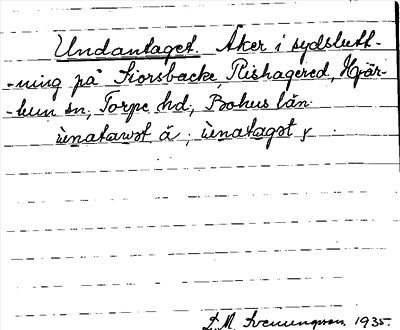 Undantaget. Åker i sydslutt-
-ning på Korsbacke, Rishagered, Hjär-
-tum sn, Torpe hd, Bohus län.
ùnatawst ä, ùnatagət y
D.M. Svenungsson. 1935.